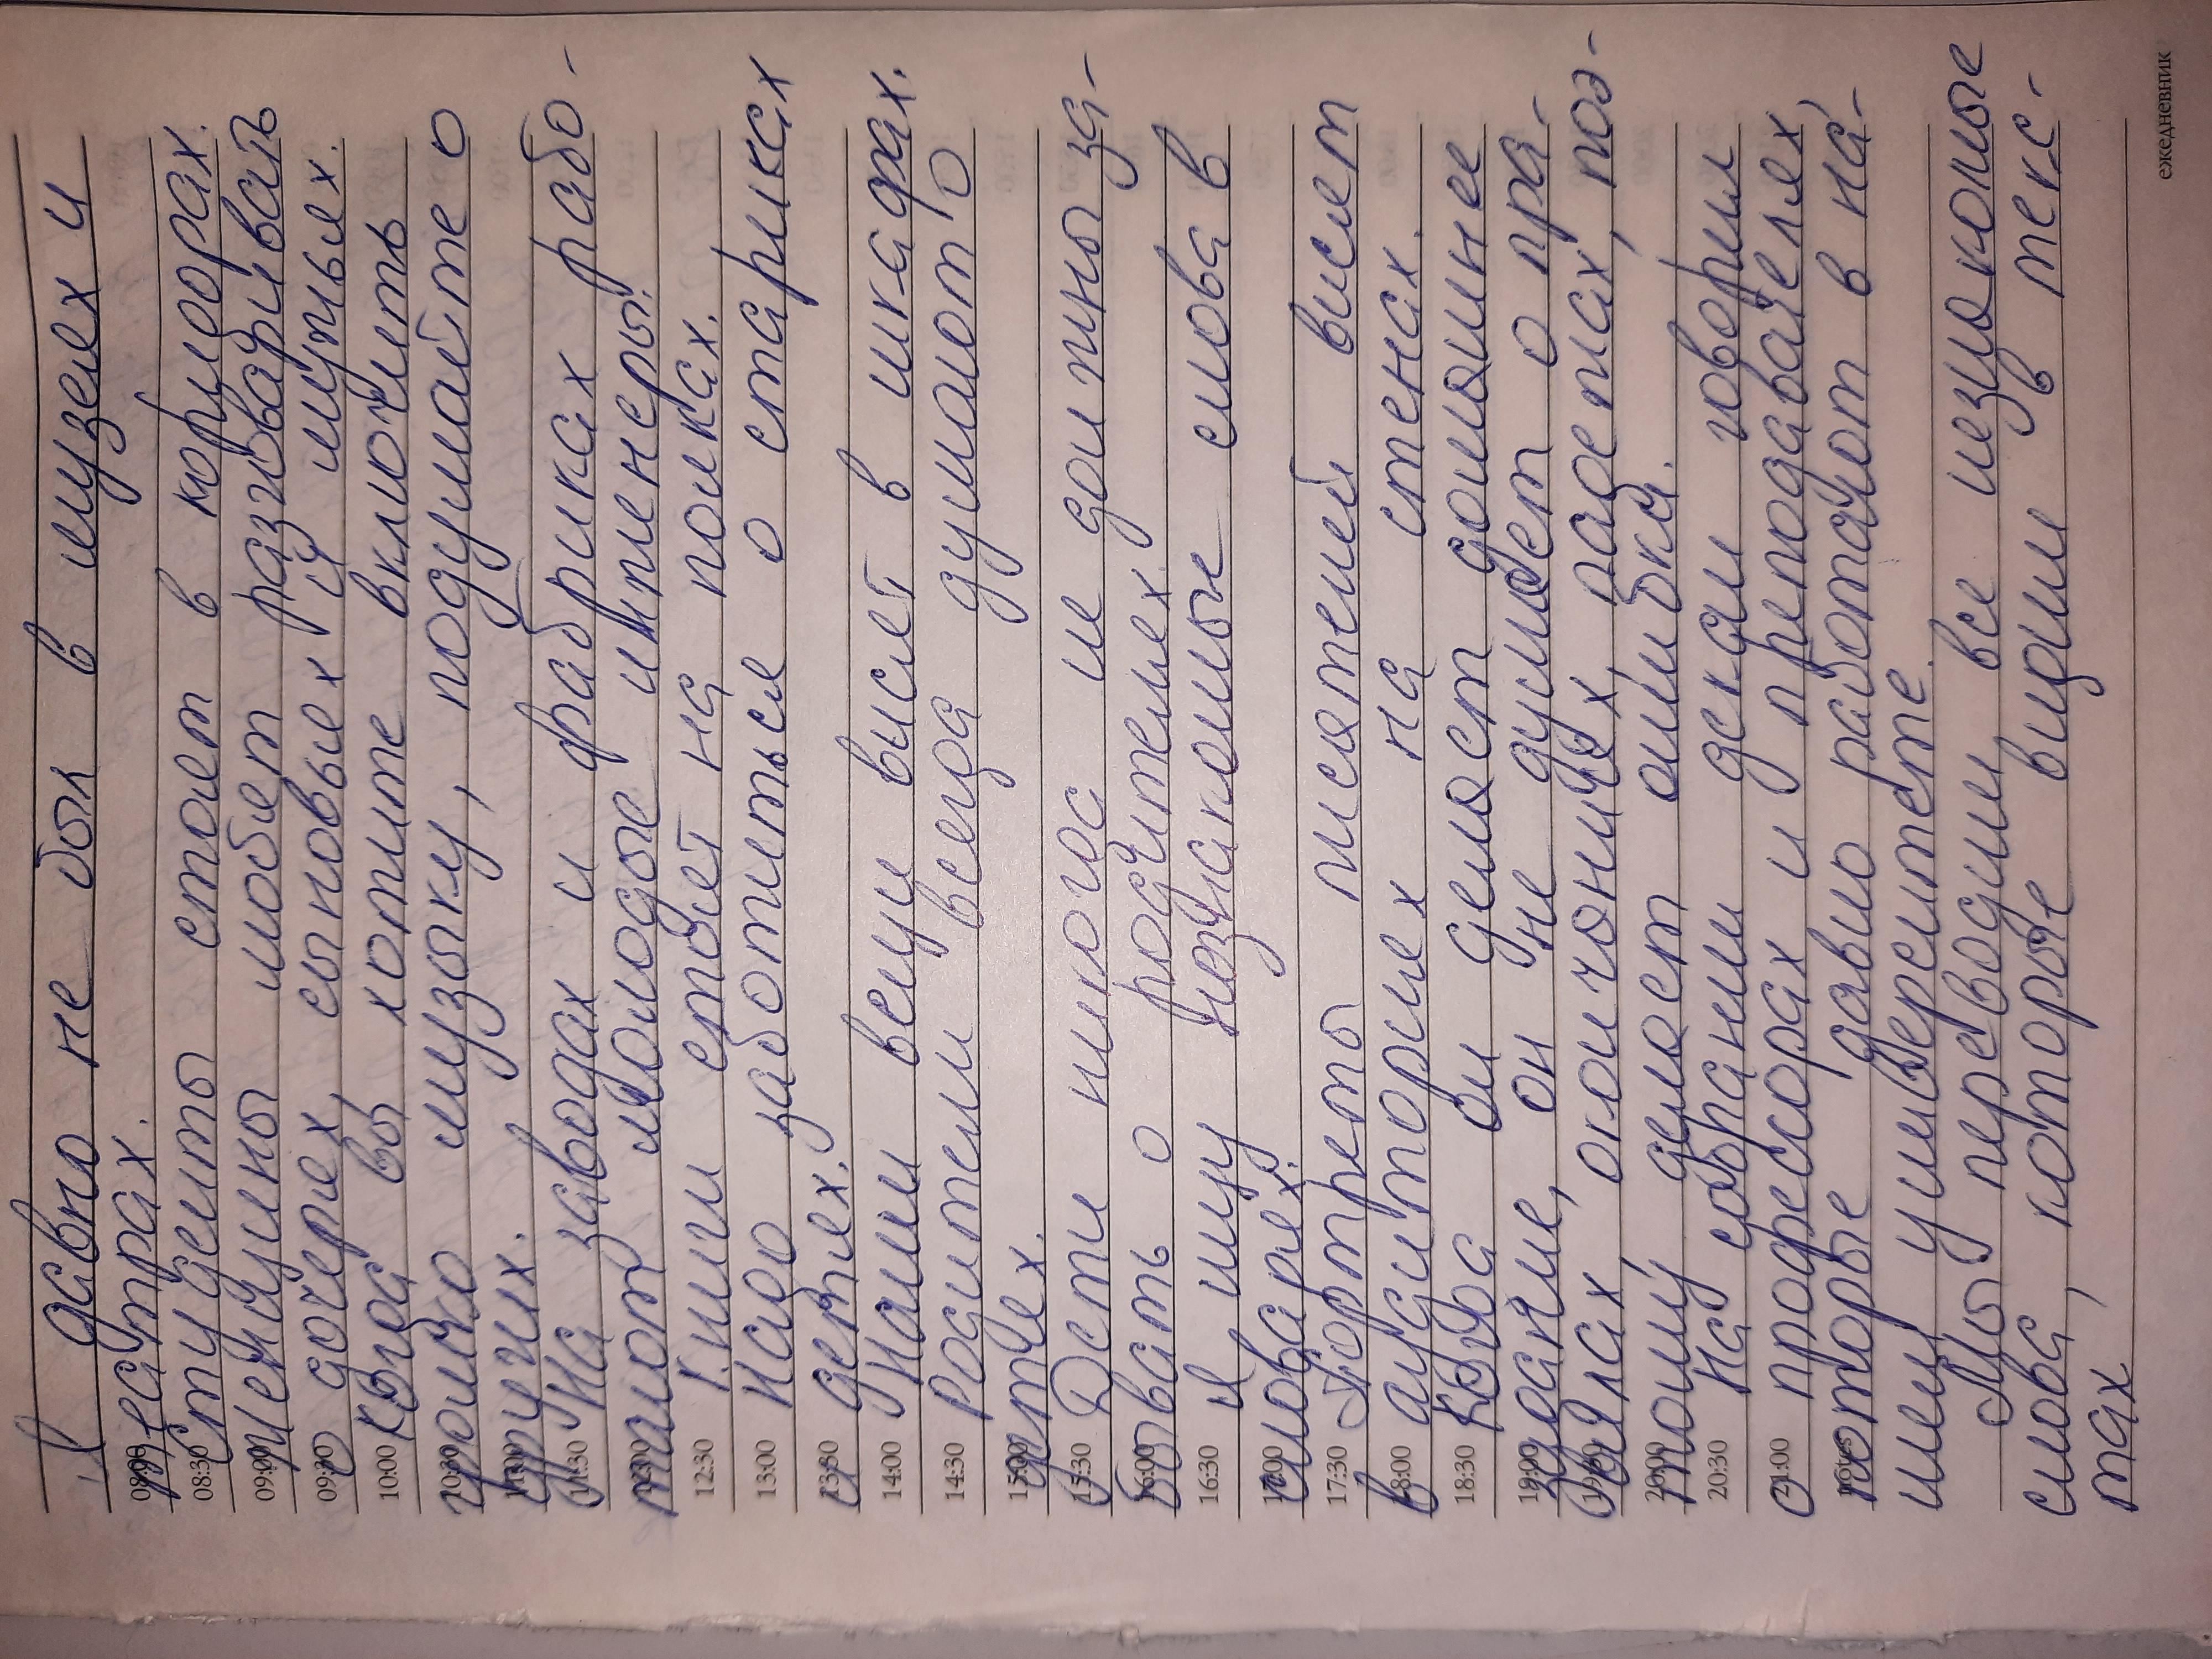 Я давно не был в музеях и
театрах.
Студенты стоят в коридорах.
Женщины любят разговаривать
о дочерях, сыновьях и мужьях.
Когда вы хотите включить
громко музыку, подумайте о
других.
На заводах и фабриках рабо-
тают молодые инженеры.
Книги стоят на полках.
Надо заботиться о стариках
и детях.
Наши вещи висят в шкафах.
Родители всегда думают о
детях.
Дети никогда не должны за-
бывать о родителях.
Я ищу незнакомые слова в
словарях.
Портреты писателей висят
в аудиториях на стенах.
Когда он делает домашнее
задание, он не думает о пра-
вилах, окончаниях, падежах, поэ-
тому делает ошибки.
На собрании декан говорил
о профессорах и преподавателях,
которые давно работают в на-
шем университете.
Мы переводим все незнакомые
слова, которые видим в текс-
тах,
08:00
08:30
09:00
09:30
10:00
10:30
11:00
11:30
12:30
13:00
13:30
14:00
14:30
15:00
15:30
16:00
16:30
17:00
17:30
18:00
18:30
19:00
20:00
20:30
21:00
notes
ежедневник